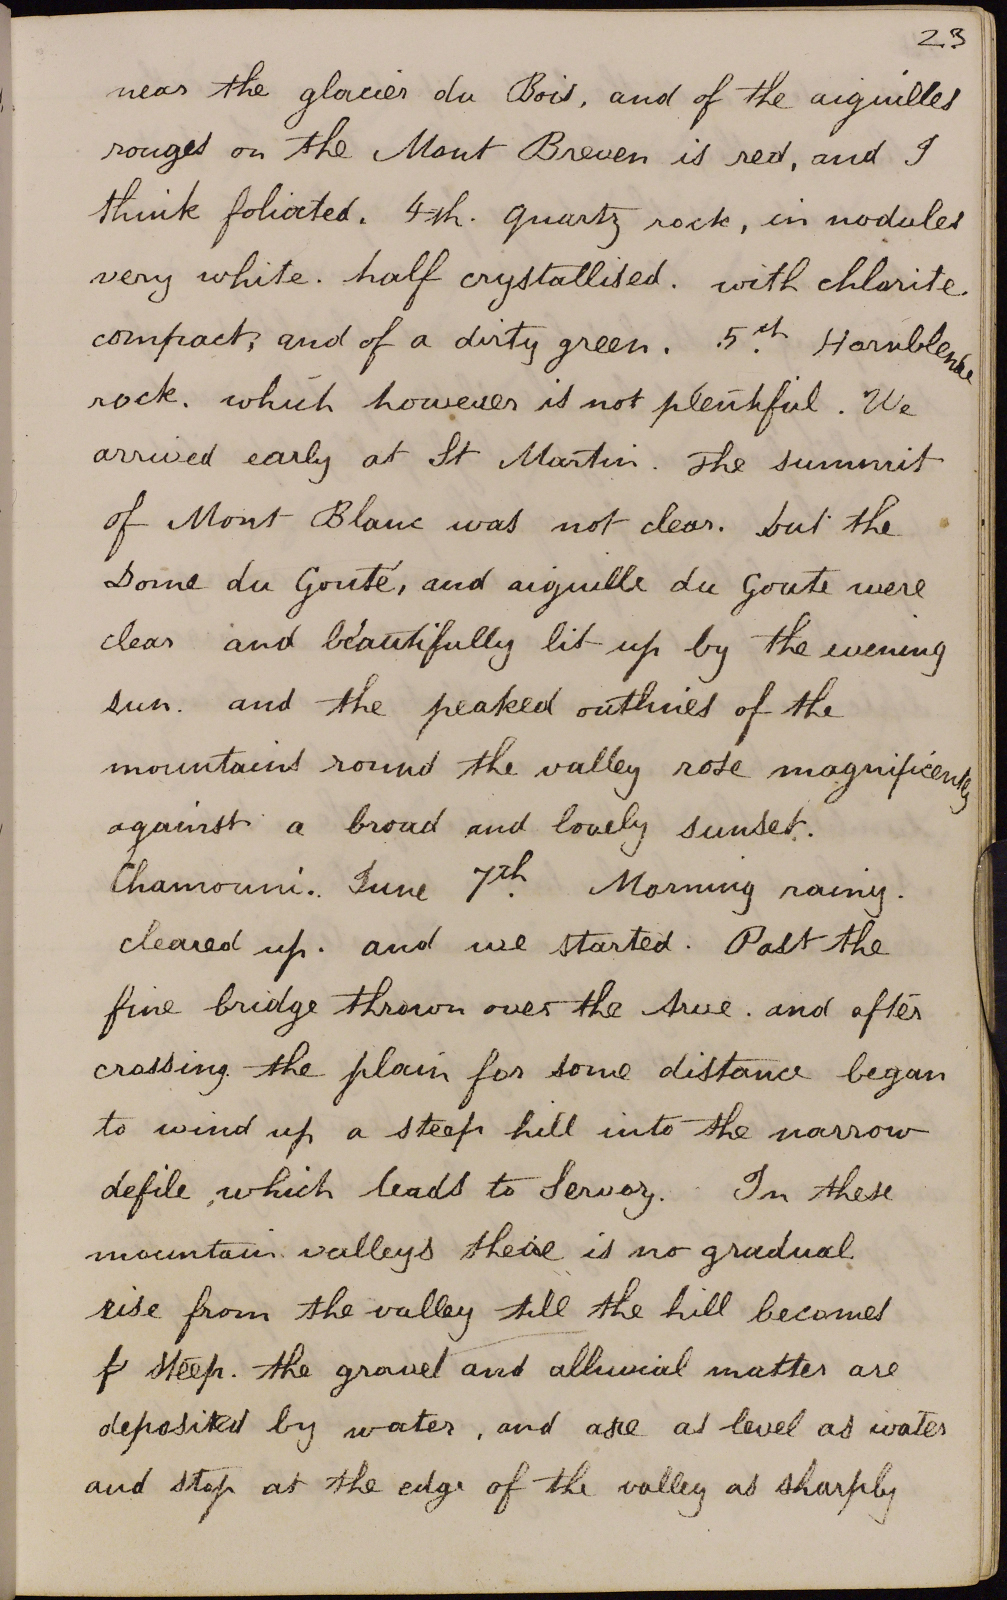 23
near the glacier du Bois, and of the aiguilles
rouges on the Mont Breven is red, and I
think foliated. 4th. Quartz rock, in nodules
very white. half crystallised. with chlorite.
compact, and of a dirty green. 5th. Hornblende
rock. which however is not plentiful. We
arrived early at St Martin. The summit
of Mont Blanc was not clear. but the
Dome du Gouté, and aiguille du Goute were
clear and beautifully lit up by the evening
sun. and the peaked outlines of the
mountains round the valley rose magnificently
against a broad and lovely sunset.
Chamouni. June 7th. Morning rainy.
cleared up. and we started. Past the
fine bridge thrown over the Arve. and after
crossing the plain for some distance began
to wind up a steep hill into the narrow
defile, which leads to Servoz. In these
mountain valleys there is no gradual
rise from the valley till the hill becomes
steep. the gravel and alluvial matter are
deposited by water, and are as level as water
and stop at the edge of the valley as sharply